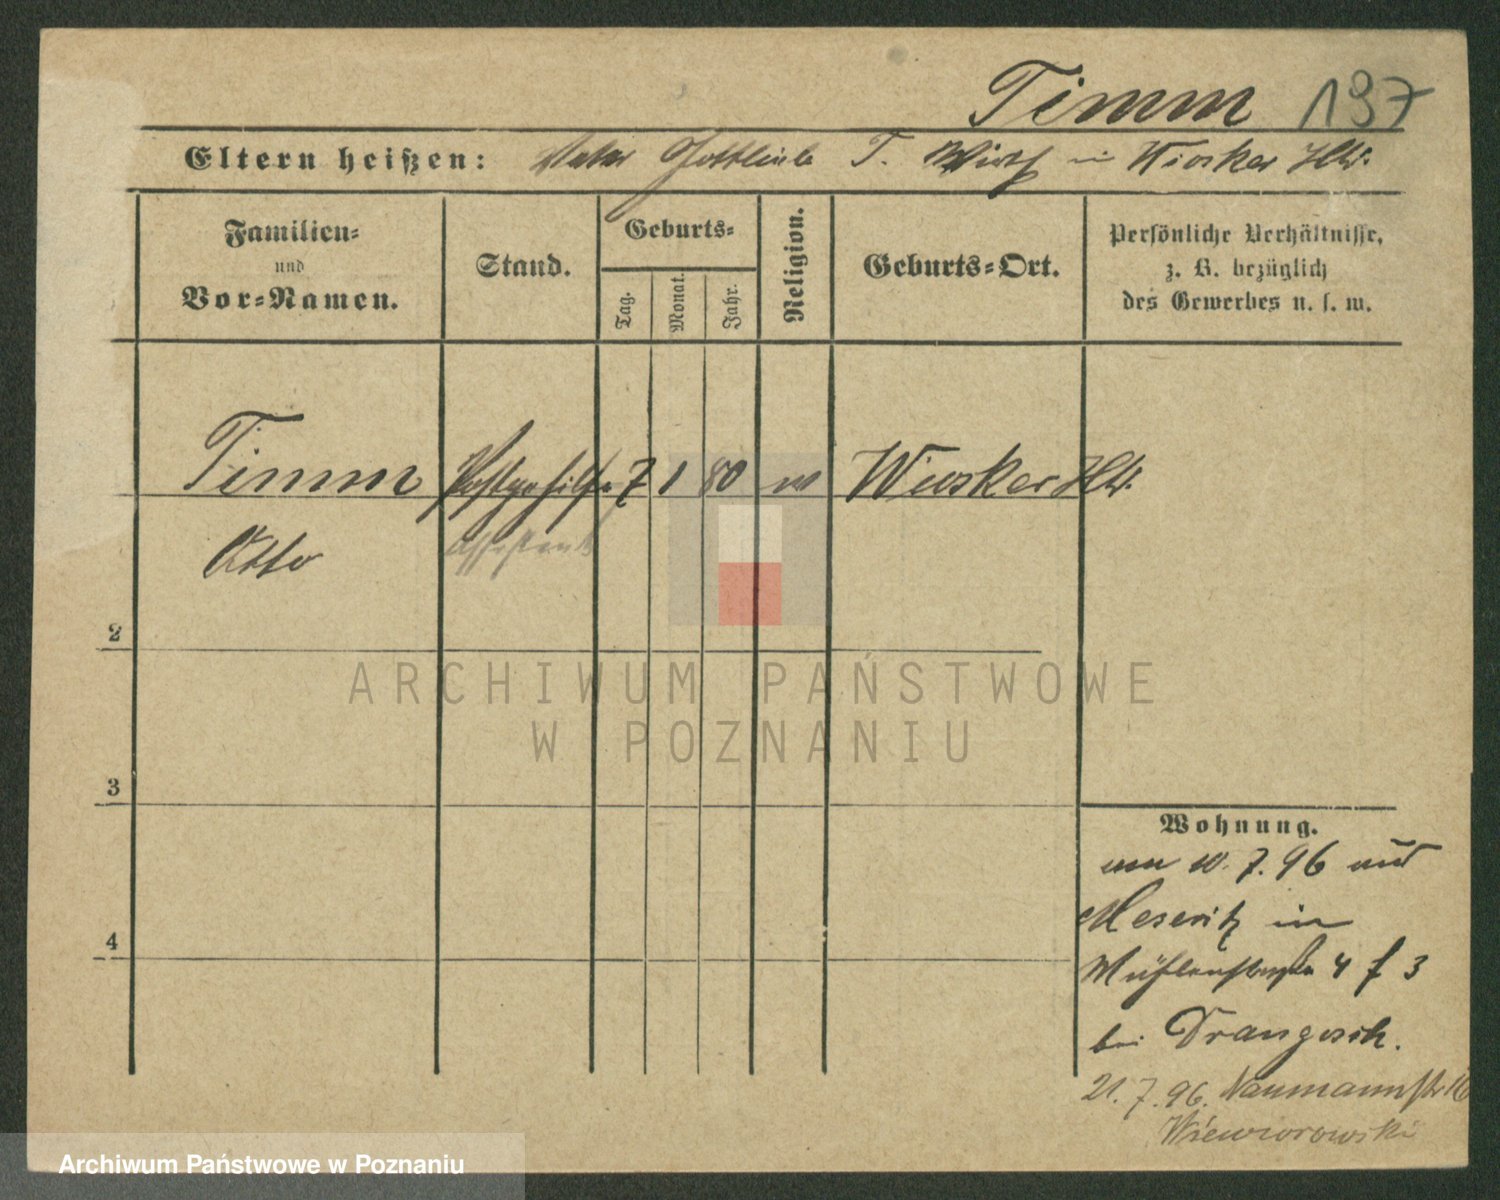 Timm 197
Eltern heißen: Vater Gottlieb T. Wirth in Wiosker Hld.
Familien-
und
Vor-Namen.
Stand.
Geburts-
Tag.
Monat.
Jahr.
Religion.
Geburts-Ort.
Persönliche Verhältnisse,
z. B. bezüglich
des Gewerbes u. s. w.
Timm Postgehilfe 7 1 80 Wiosker Hld.
Otto Assistent
2
3
4
Wohnung.
10.7.96 aus
Meseritz in
Mühlenstraße 4 3
bei
21.7.96. Naumannstr 16
Wiewiorowski
ARCHIWUM PAŃSTWOWE
W POZNANIU
Archiwum Państwowe w Poznaniu